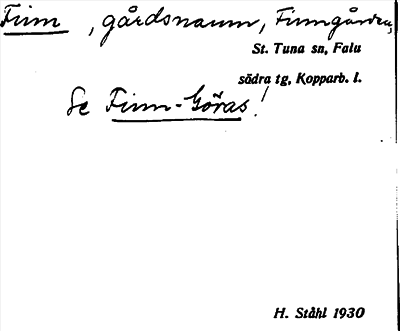 Finn, gårdsnamn, Finngården,
St. Tuna sn, Falu
södra tg, Kopparb. l.
Se Finn-Göras!
H. Ståhl 1930